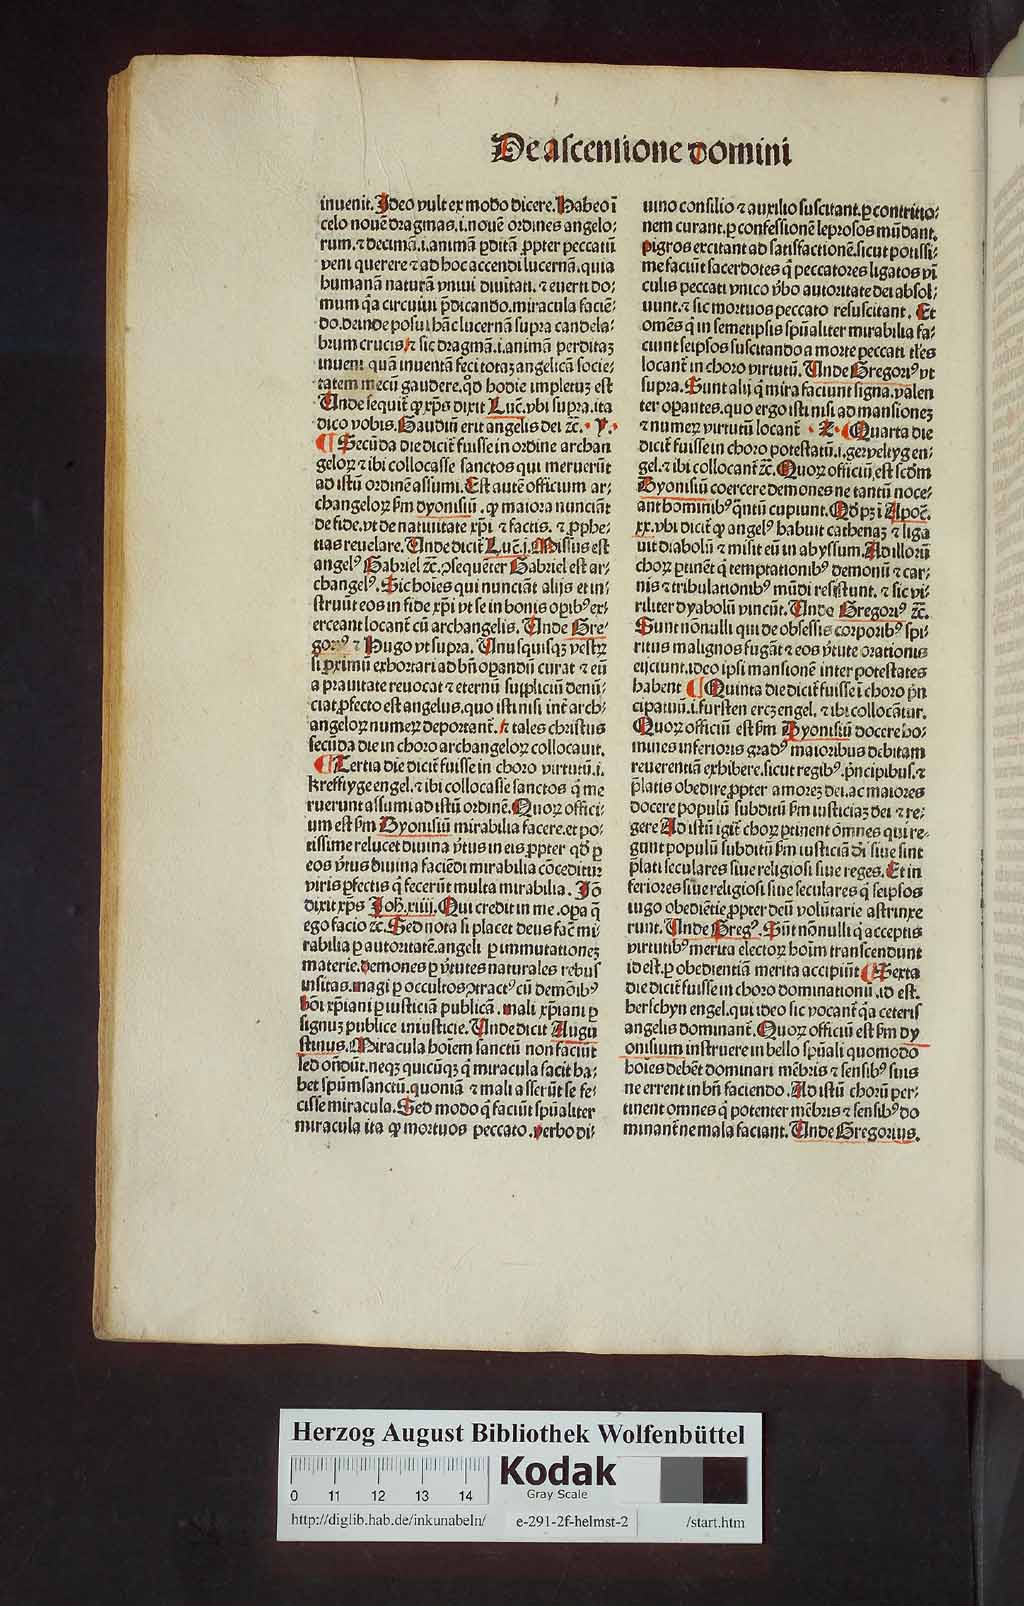 De ascensione domini
inuenit. Ideo vult ex modo dicere. Habeo ī
celo nouē dragmas .i. nouē ordines angelo-
rum. ⁊ decimā .i. animā ꝑditā ꝓpter peccatū
veni querere ⁊ ad hoc accendi lucernā. quia
humanā naturā vniui diuītati. ⁊ euerti do-
mum q̄a circuiui p̄dicando. miracula faciē-
do. deinde posui hāc lucernā supra candela-
brum crucis ⁊ sic dragmā .i. animā perditaꝫ
inueni quā inuentā feci totaꝫ angelicā socie-
tatem mecū gaudere. qḋ hodie impletuꝫ est
Unde sequit̄ ꝙ xp̄s dixit Luc̄. vbi supra. ita
dico vobis. Gaudiū erit angelis dei ⁊c̄. Y.
¶ Secūda die dicit̄ fuisse in ordine archan
geloꝝ ⁊ ibi collocasse sanctos qui meruerūt
ad istū ordinē assumi. Est autē officium ar-
changeloꝝ ẜm dyonisiū. ꝙ maiora nunciāt
de fide. vt de natiuitate xp̄i ⁊ factis. ⁊ ꝓphe-
tias reuelare. Unde dicit̄ Luc̄. i. Missus est
angelꝰ Gabriel ⁊c̄. ꝯsequēter Gabriel est ar-
changelꝰ. Sic hoīes qui nunciāt alijs et in-
struūt eos in fide xp̄i vt se in bonis oꝑibꝰ ex-
erceant locant̄ cū archangelis. Unde Gre-
gorꝰ ⁊ Hugo vt supra. Unusquisqꝫ vestꝝ
si ꝓximū exhortari ad bn̄ oꝑandū curat ⁊ eū
a prauitate reuocat ⁊ eternū suppliciū denū-
ciat ꝓfecto est angelus. quo isti nisi int̄ arch-
angeloꝝ numeꝝ deportant̄. ⁊ tales christus
secūda die in choro archangeloꝝ collocauit.
¶ Tertia die dicit̄ fuisse in choro virtutū .i.
kreffiyge engel. ⁊ ibi collocasse sanctos q̄ me
ruerunt assumi ad istū ordinē. Quoꝝ offici-
um est ẜm Dyonisiū mirabilia facere. et po-
tissime relucet diuina v̄tus in eis ꝓpter qḋ ꝑ
eos v̄tus diuina faciēdi mirabilia cōceditur
viris ꝑfectis q̄ fecerūt multa mirabilia. Iō
dixit xp̄s Joh̄. xiiij. Qui credit in me. oꝑa q̄
ego facio ⁊c̄. Sed nota si placet deus fac̄ mi
rabilia ꝑ autoritatē. angeli ꝑ immutationeꝫ
materie. demones ꝑ v̄tutes naturales rebus
insitas. magi ꝑ occultos ꝯtractꝰ cū demōibꝰ
bōi xp̄iani ꝑ iusticiā publicā. mali xp̄iani ꝑ
signuꝫ publice iniusticie. Unde dicit Augu
stinus. Miracula hoīem sanctū non faciūt
sed on̄dūt. neqꝫ quicūqꝫ q̄ miracula facit ha-
bet spūmsanctū. quoniā ⁊ mali asserūt se fe-
cisse miracula. Sed modo q̄ faciūt spūaliter
miracula ita ꝙ mortuos peccato. verbo di-
uino consilio ⁊ auxilio suscitant. ꝑ contritio-
nem curant. ꝑ confessionē leprosos mūdant.
pigros excitant ad satisfactionē. sicut potissi-
me faciūt sacerdotes q̄ peccatores ligatos vī
culis peccati vnico v̄bo autoritate dei absol-
uunt. ⁊ sic mortuos peccato resuscitant. Et
omēs q̄ in semetipsis spūaliter mirabilia fa-
ciunt seipsos suscitando a morte peccati tl̄es
locant̄ in choro virtutū. Unde Gregoriꝰ vt
supra. Sunt alij q̄ mira faciunt signa. valen
ter oꝑantes. quo ergo isti nisi ad mansioneꝫ
⁊ numeꝝ virtutū locant̄ Z. ¶ Quarta die
dicit̄ fuisse in choro potestatū .i. geweltyg en-
gel. ⁊ ibi collocant̄ ⁊c̄. Quoꝝ officiū, est scḋm
Dyonisiū coercere demones ne tantū noce-
ant hominibꝰ q̄ntū cupiunt. Qḋ pꝫ i Apoc̄.
xx. vbi dicit̄ ꝙ angelꝰ habuit cathenaꝫ ⁊ liga
uit diabolū ⁊ misit eū in abyssum. Ad illorū
choꝝ ꝑtinēt q̄ temptationibꝰ demonū ⁊ car-
nis ⁊ tribulationibꝰ mūdi resistunt. ⁊ sic vi-
riliter dyabolū vincūt. Unde Gregoriꝰ ⁊c̄.
Sunt nōnulli qui de obsessis corporibꝰ spi-
ritus malignos fugāt ⁊ eos v̄tute orationis
eijciunt. ideo ipsi mansionē inter potestates
habent ¶ Quinta die dicit̄ fuisse ī choro prī
cipatuū .i. fursten erczengel. ⁊ ibi collocātur.
Quoꝝ officiū est ẜm Dyonisiū docere ho-
mines inferioris gradꝰ maioribus debitam
reuerentiā exhibere. sicut regibꝰ. prīncipibus. ⁊
p̄latis obedire ꝓpter amoreꝫ dei. ac maiores
docere populū subditū ẜm iusticiaꝫ dei ⁊ re-
gere Ad istū igit̄ choꝝ ꝑtinent ōmnes qui re-
gunt populū subditū ẜm iusticiā dī siue sint
p̄lati seculares siue religiosi siue reges. Et in
feriores siue religiosi siue seculares q̄ seipsos
iugo obediētie ꝓpter deū volūtarie astrinxe
runt. Unde Gregꝰ. Sūt nōnulli q̄ acceptis
virtutibꝰ merita electoꝝ hoim transcendunt
id est. ꝑ obedientiā merita accipiūt ¶ Sexta
die dicit̄ fuisse in choro dominationū. id est.
herschyn engel. qui ideo sic vocant̄ q̄a ceteris
angelis dominant̄. Quoꝝ officiū est ẜm dy
onisium instruere in bello spūali quomodo
hoīes debēt dominari mēbris ⁊ sensibꝰ suis
ne errent in bn̄ faciendo. Ad istū chorū per-
tinent omnes q̄ potenter mēbris ⁊ sensibꝰ do
minant̄ ne mala faciant. Unde Gregorius.
Herzog August Bibliothek Wolfenbüttel
Kodak
Gray Scale
0 11 12 13 14
http://diglib.hab.de/inkunabeln/ e-291-2f-helmst-2 /start.htm